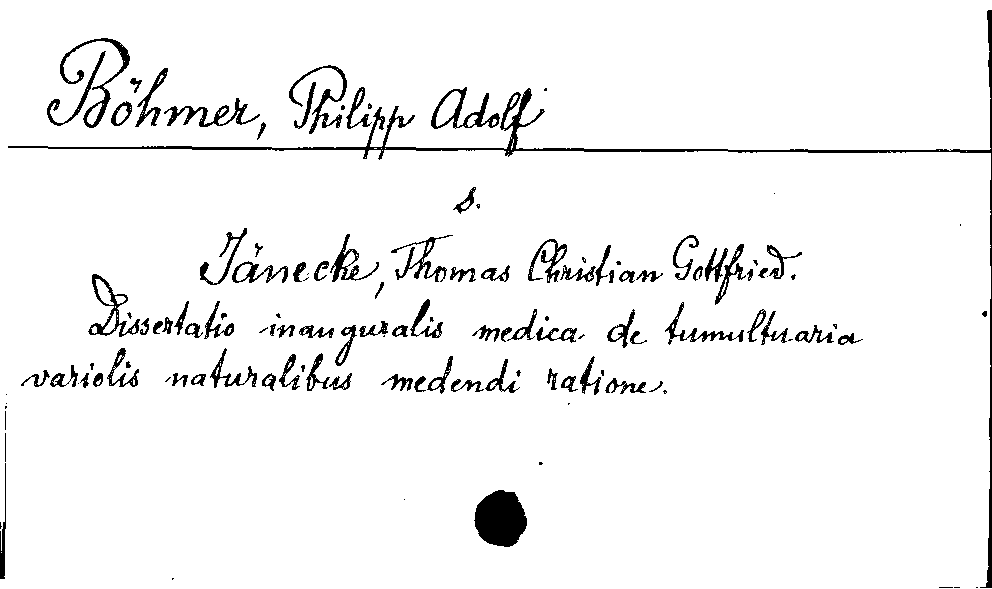 Böhmer, Philipp Adolf
s.
Jänecke, Thomas Christian Gottfried.
Dissertatio inauguralis medica de tumultuaria
variolis naturalibus medendi ratione.